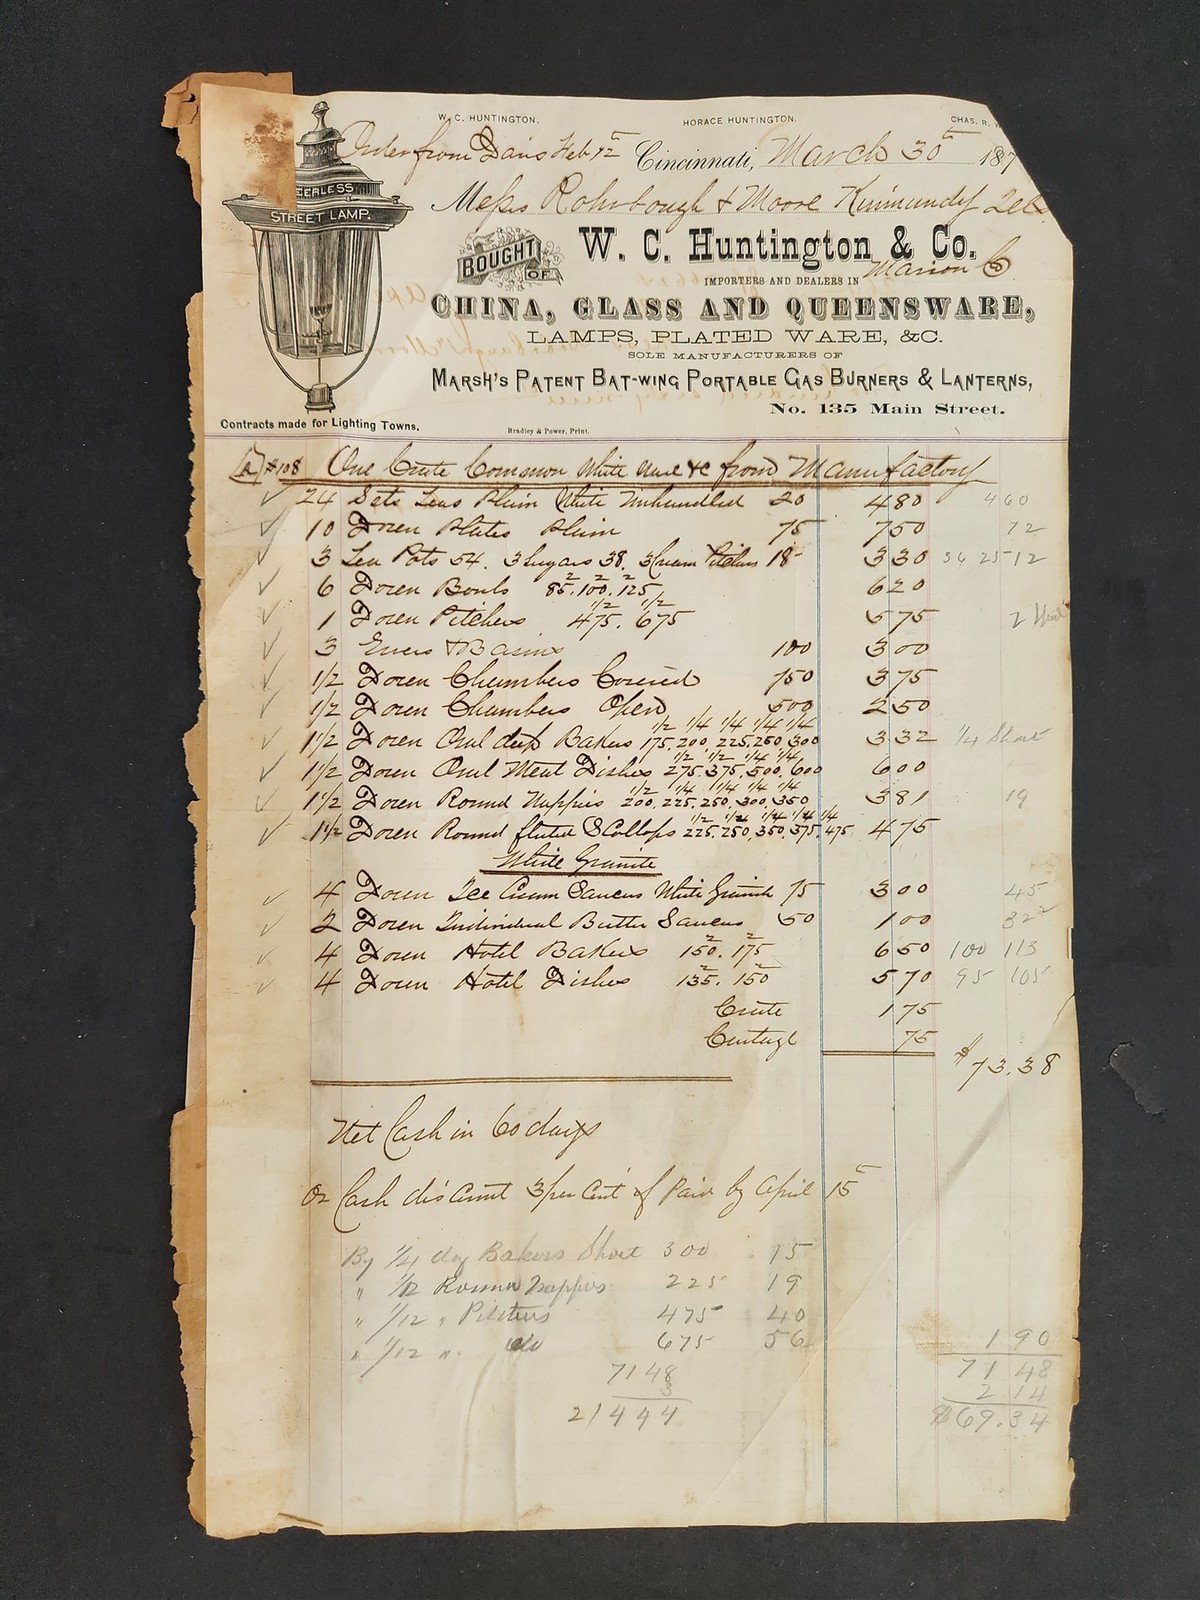 W. C. HUNTINGTON. HORACE HUNTINGTON. CHAS. R.
Order from Davis Feb 12 Cincinnati, March 30 187
Messrs Rohrbough & Moore Kinmundy Ills
PEERLESS
STREET LAMP.
BOUGHT OF W. C. Huntington & Co.
Marion Co
IMPORTERS AND DEALERS IN
CHINA, GLASS AND QUEENSWARE,
LAMPS, PLATED WARE, &C.
SOLE MANUFACTURERS OF
MARSH'S PATENT BAT-WING PORTABLE GAS BURNERS & LANTERNS,
No. 135 Main Street.
Contracts made for Lighting Towns.
Bradley & Power, Print.
#108 One Crate Common White Ware &c from Manufactory
24 Sets Teas Plain White Unhandled 20 480 460
10 Dozen Plates Plain 75 750 72
3 Tea Pots 54. 3 Sugars 38. 3 Cream Pitchers 18 330 36 25 12
6 Dozen Bowls 2 85. 2 100. 2 125 620
1 Dozen Pitchers 1/2 475. 1/2 675 575 2 Short
3 Ewers & Basins 100 300
1/2 Dozen Chambers Covered 750 375
1/2 Dozen Chambers Open 500 250
1 1/2 Dozen Oval deep Bakers 1/2 175. 1/4 200. 1/4 225. 1/4 250. 1/4 300 332 1/4 Short
1 1/2 Dozen Oval Meat Dishes 1/2 275. 1/2 375. 1/4 500. 1/4 600 600
1 1/2 Dozen Round Nappies 1/2 200. 1/4 225. 1/4 250. 1/4 300. 1/4 350 381 19
1 1/2 Dozen Round fluted Scollops 1/2 225. 1/4 250. 1/4 350. 1/4 375. 1/4 475 475
White Granite
4 Dozen Ice Cream Saucers White Granite 75 300 45
2 Dozen Individual Butter Saucers 50 100 32
4 Dozen Hotel Bakers 2 150. 2 175 650 100 113
4 Dozen Hotel Dishes 2 135. 2 150 570 95 105
Crate 175
Cartage 75
$73.38
Net Cash in 60 days
Or Cash discount 3 per Cent if Paid by April 15
By 1/4 doz Bakers Short 300 75
" 1/12 Round Nappies 225 19
" 1/12 " Pitchers 475 40
" 1/12 " do 675 56 190
7148 7148
3 214
21444 $69.34